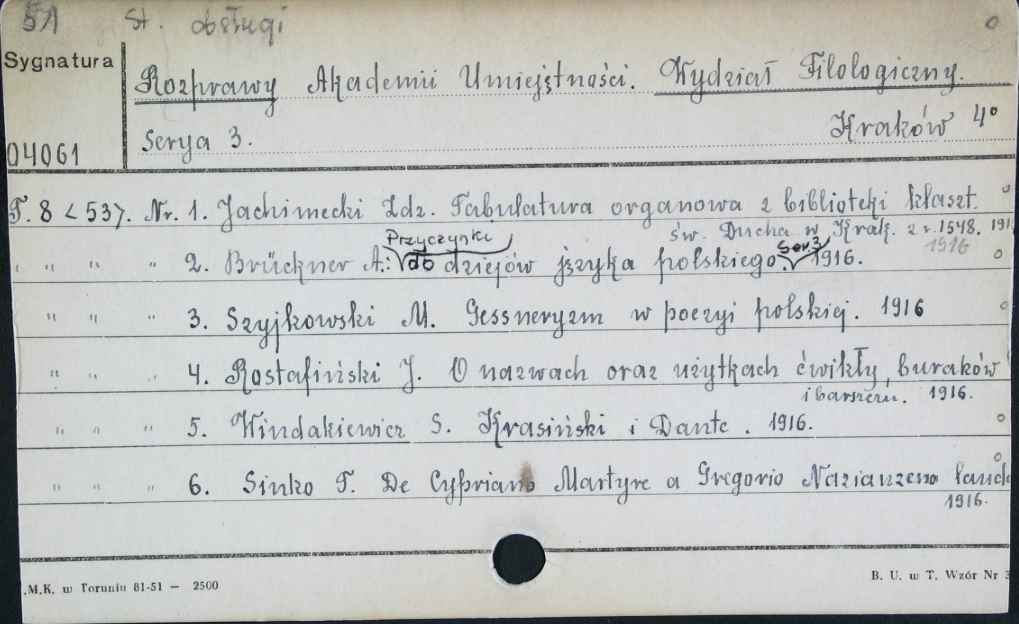 51 St. obsługi
Sygnatura
Rozprawy Akademii Umiejętności. Wydział Filologiczny.
Serya 3. Kraków 4°
04061
T. 8 <53>. Nr. 1. Jachimecki Zdz. Tabulatura organowa z biblioteki klaszt.
św. Ducha w Krak. z r. 1548. 191
1916
" " " 2. Brückner A.: Przyczynki do dziejów języka polskiego. Ser. 3 1916.
" " " 3. Szyjkowski M. Gessneryzm w poezyi polskiej. 1916
" " " 4. Rostafiński J. O nazwach oraz użytkach ćwikły, buraków
i barszczu. 1916.
" " " 5. Windakiewicz S. Krasiński i Dante. 1916.
" " " 6. Sinko T. De Cypriano Martyre a Gregorio Nazianzeno laud
1916.
.M.K. w Toruniu 81-51 — 2500
B. U. w T. Wzór Nr 3